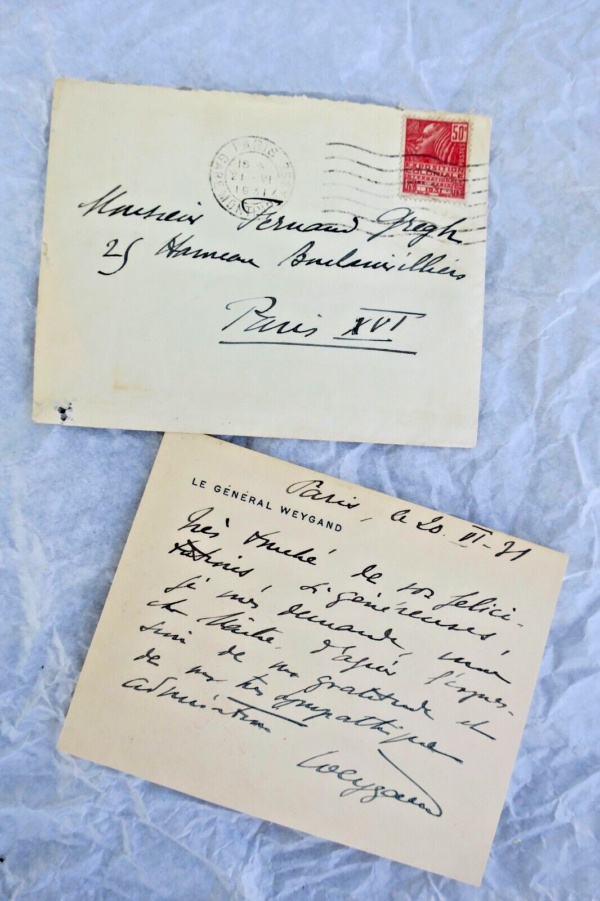 PARIS
21 VI
1931
50c
EXPOSITION
COLONIALE
INTERNATIONALE
PARIS
1931
Monsieur Fernand Gregh
25 Hameau Boulainvilliers
Paris XVI
LE GÉNÉRAL WEYGAND
Paris, le 20. VI-31
Très touché de vos félici-
tations, si généreuses,
je vous demande, mon
cher Maître, d'agréer l'expres-
sion de ma gratitude et
de ma très sympathique
admiration
Weygand